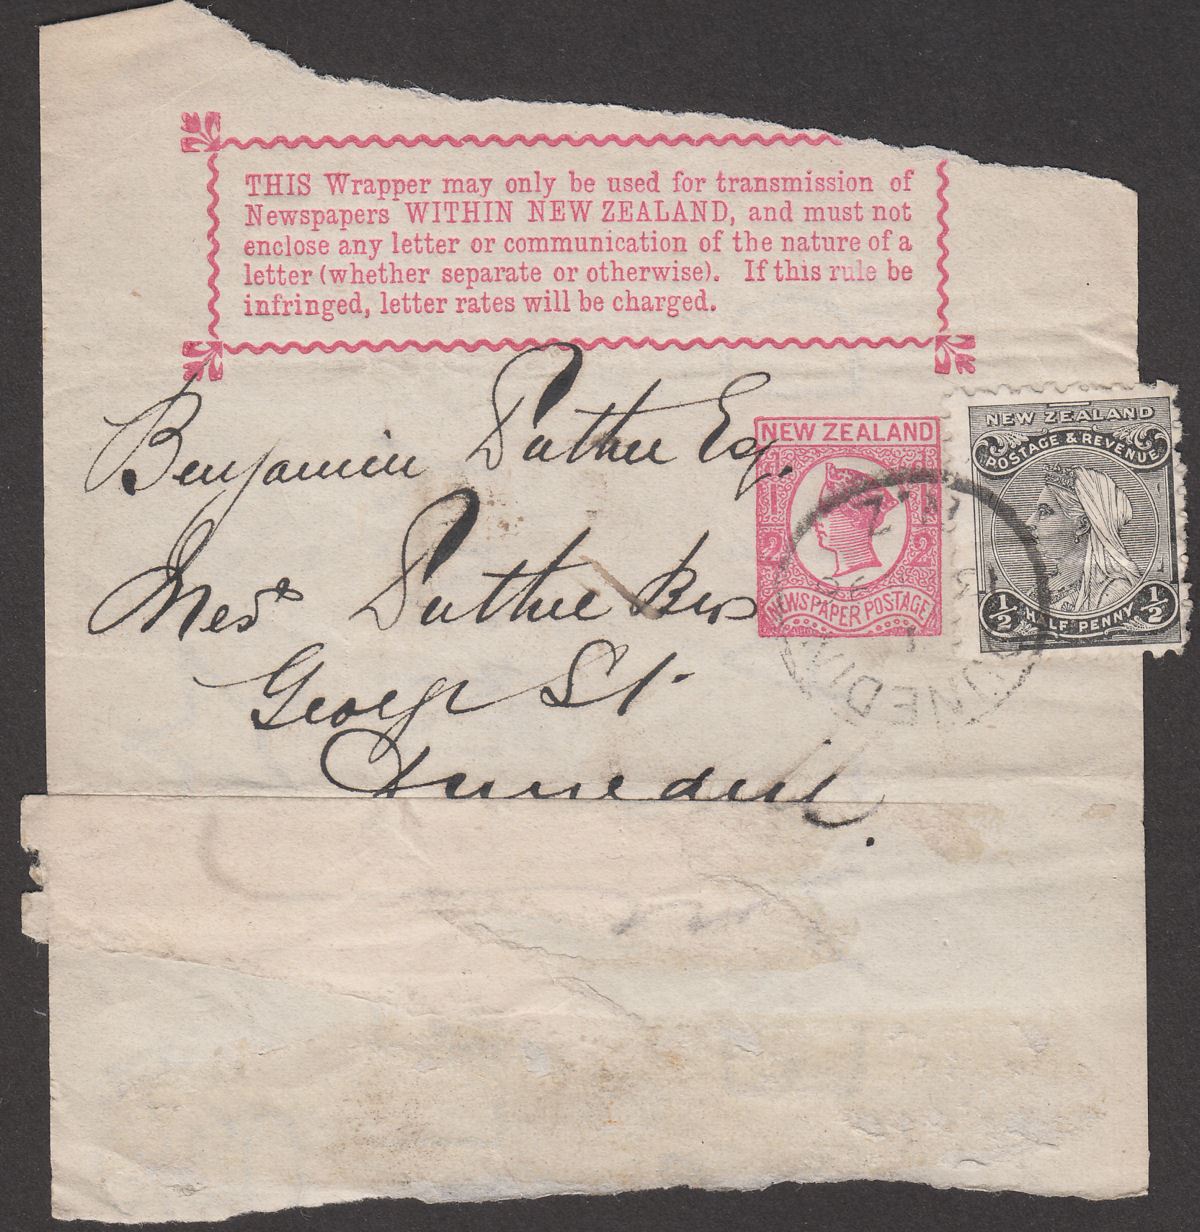 THIS Wrapper may only be used for transmission of
Newspapers WITHIN NEW ZEALAND, and must not
enclose any letter or communication of the nature of a
letter (whether separate or otherwise). If this rule be
infringed, letter rates will be charged.
Benjamin Duthie Esq.
Mess Duthie Bros
George St
Dunedin.
NEW ZEALAND
1 1
2 2
NEWSPAPER POSTAGE
NEW ZEALAND
POSTAGE & REVENUE
1/2 HALF PENNY 1/2
N.Z
DUNEDIN